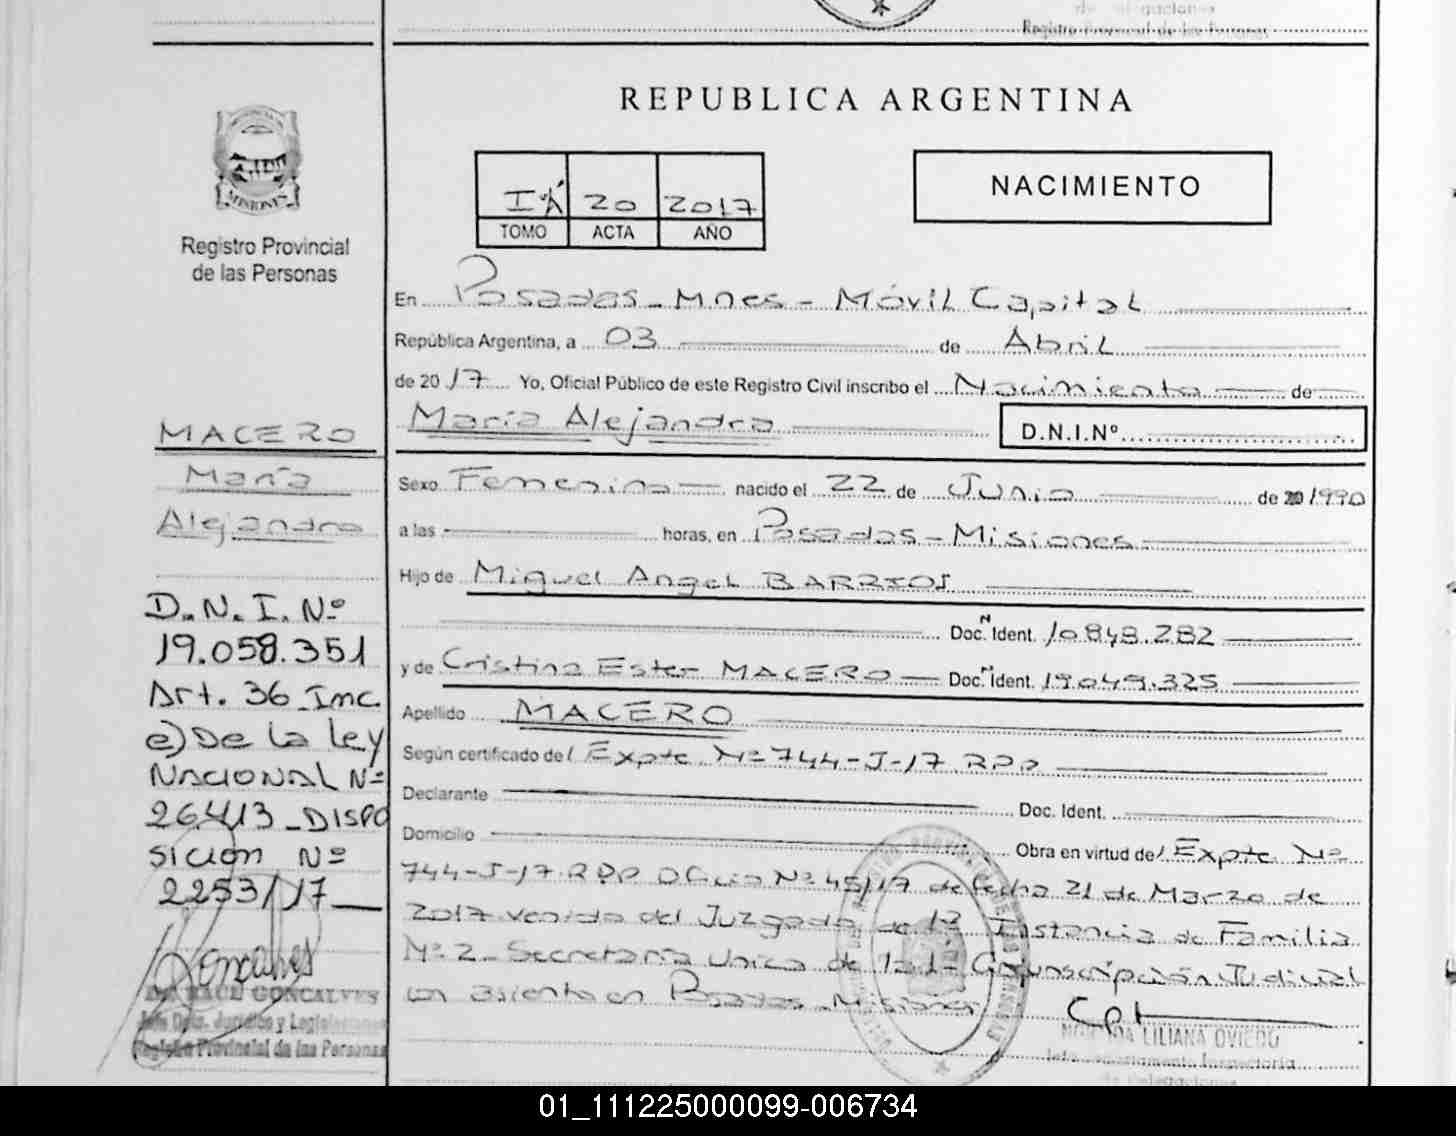 Registro Provincial de las Personas
REPUBLICA ARGENTINA
MISIONES
Registro Provincial
de las Personas
20 2017
TOMO ACTA AÑO
NACIMIENTO
En Posadas - Mnes - Móvil Capital
República Argentina, a 03 de Abril
de 2017 Yo, Oficial Público de este Registro Civil inscribo el Nacimiento de
María Alejandra D.N.I.Nº
MACERO
María
Alejandra
D.N.I. Nº
19.058.351
Art. 36 Inc.
e) De la ley
NACIONAL Nº
26.413 - DISPO
SICION Nº
2253/17
GONCALVES
Jefe Dpto. Jurídico y
Registro Provincial de las Personas
Sexo Femenino nacido el 22 de Junio de 1990
a las horas, en Posadas - Misiones
Hijo de Miguel Angel BARRIOS
Doc. Ident. 10.848.282
y de Cristina Ester MACERO Doc. Ident. 19.049.325
Apellido MACERO
Según certificado del Expte Nº 744-J-17 RPP
Declarante Doc. Ident.
Domicilio Obra en virtud del Expte Nº
744-J-17 RPP Oficio Nº 45/17 de fecha 21 de Marzo de
2017 venido del Juzgado de 1ª Instancia de Familia
Nº 2 - Secretaría Unica de la 1ª Circunscripción Judicial
con asiento en Posadas - Misiones
LILIANA OVIEDO
01_111225000099-006734